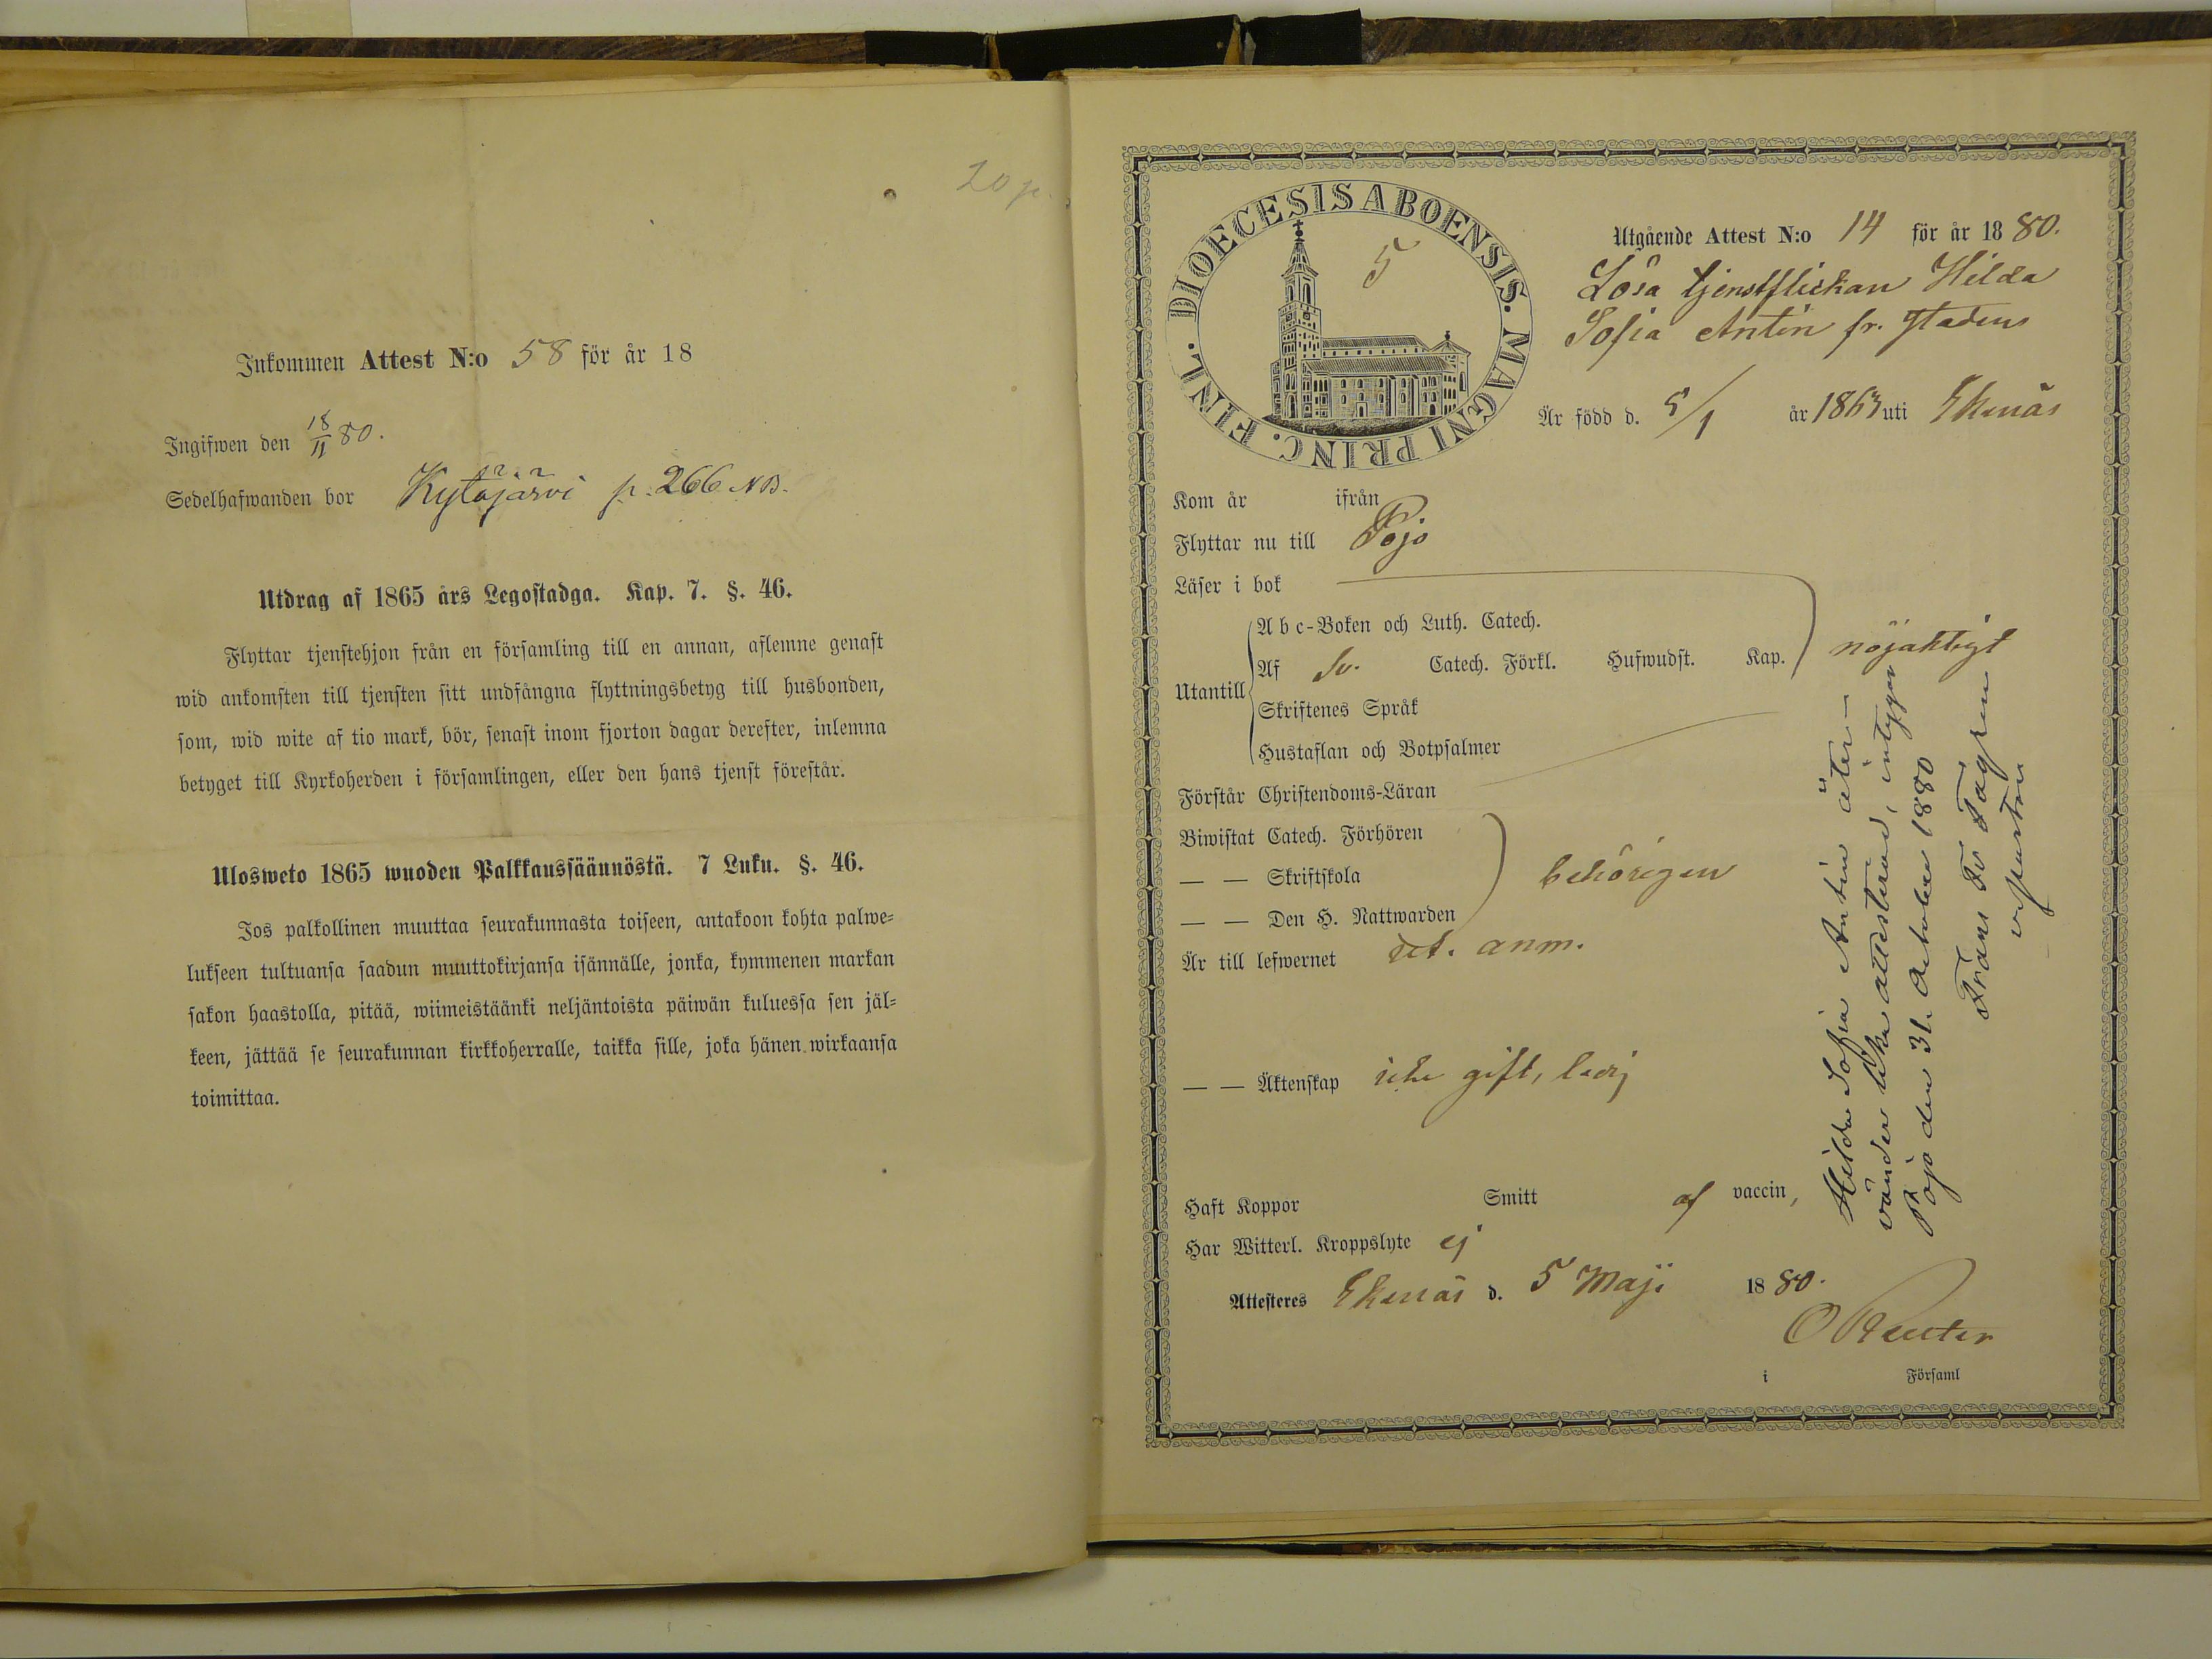 20 p.
Inkommen Attest N:o 58 för år 18
Ingifwen den 18/11 80.
Sedelhafwanden bor Kytäjärvi p. 266 NB.
Utdrag af 1865 års Legostadga. Kap. 7. §. 46.
Flyttar tjenstehjon från en församling till en annan, aflemne genast
wid ankomsten till tjensten sitt undfångna flyttningsbetyg till husbonden,
som, wid wite af tio mark, bör, senast inom fjorton dagar derefter, inlemna
betyget till Kyrkoherden i församlingen, eller den hans tjenst förestår.
Ulosweto 1865 wuoden Palkkaussäännöstä. 7 Luku. §. 46.
Jos palkollinen muuttaa seurakunnasta toiseen, antakoon kohta palwe=
lukseen tultuansa saadun muuttokirjansa isännälle, jonka, kymmenen markan
sakon haastolla, pitää, wiimeistäänki neljäntoista päiwän kuluessa sen jäl=
keen, jättää se seurakunnan kirkkoherralle, taikka sille, joka hänen wirkaansa
toimittaa.
DIOECESIS ABOENSIS. MAGNI PRINC. FINL.
5
Utgående Attest N:o 14 för år 1880.
Lösa tjenstflickan Hilda
Sofia Antin fr. Staden
Är född d. 5/1 år 1863 uti Ekenäs
Kom år ifrån
Flyttar nu till Pojo
Läser i bok
Utantill
A b c-Boken och Luth. Catech.
Af Sv. Catech. Förkl. Hufwudst. Kap. nöjaktigt
Skriftenes Språk
Hustaflan och Botpsalmer
Förstår Christendoms-Läran
Biwistat Catech. Förhören
— — Skriftskola behörigen
— — Den H. Nattwarden
Är till lefwernet ut. anm.
— — Äktenskap icke gift, ledig
Haft Koppor Smitt af vaccin,
Har Witterl. Kroppslyte ej
Attesteres Ekenäs d. 5 Maji 1880.
O Reuter
i Församl
Hilda Sofia Antin åter-
vänder lika attesterad, intygar
Pojo den 31 October 1880
Frans Fr